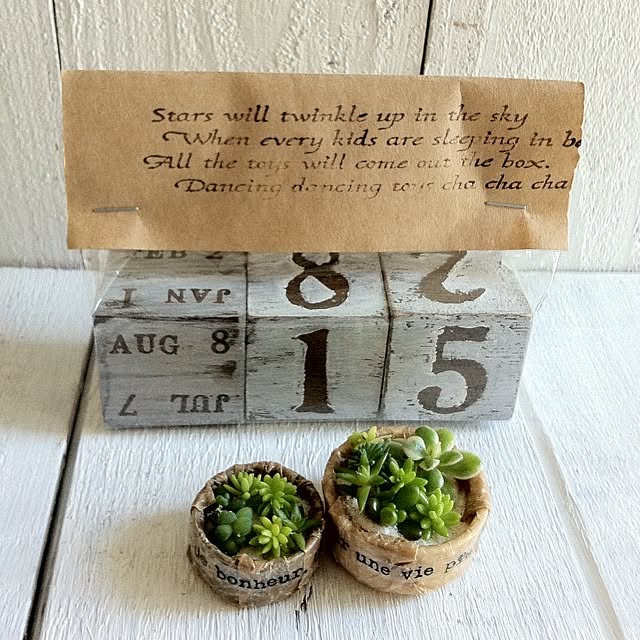 Stars will twinkle up in the sky
When every kids are sleeping in be
All the toys will come out the box.
Dancing dancing toys cha cha cha
FEB 2 8 2
JAN 1
AUG 8 1 5
JUL 7
bonheur.
une vie